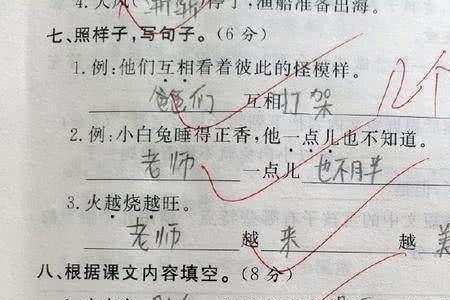 4. 大风(渐渐)停了,渔船准备出海。
七、照样子,写句子。(6分)
1. 例:他们互相看着彼此的怪模样。
爸爸们 互相 打架
12个
2. 例:小白兔睡得正香,他一点儿也不知道。
老师 一点儿 也不胖
3. 火越烧越旺。
老师 越 来 越 美
八、根据课文内容填空。(8分)